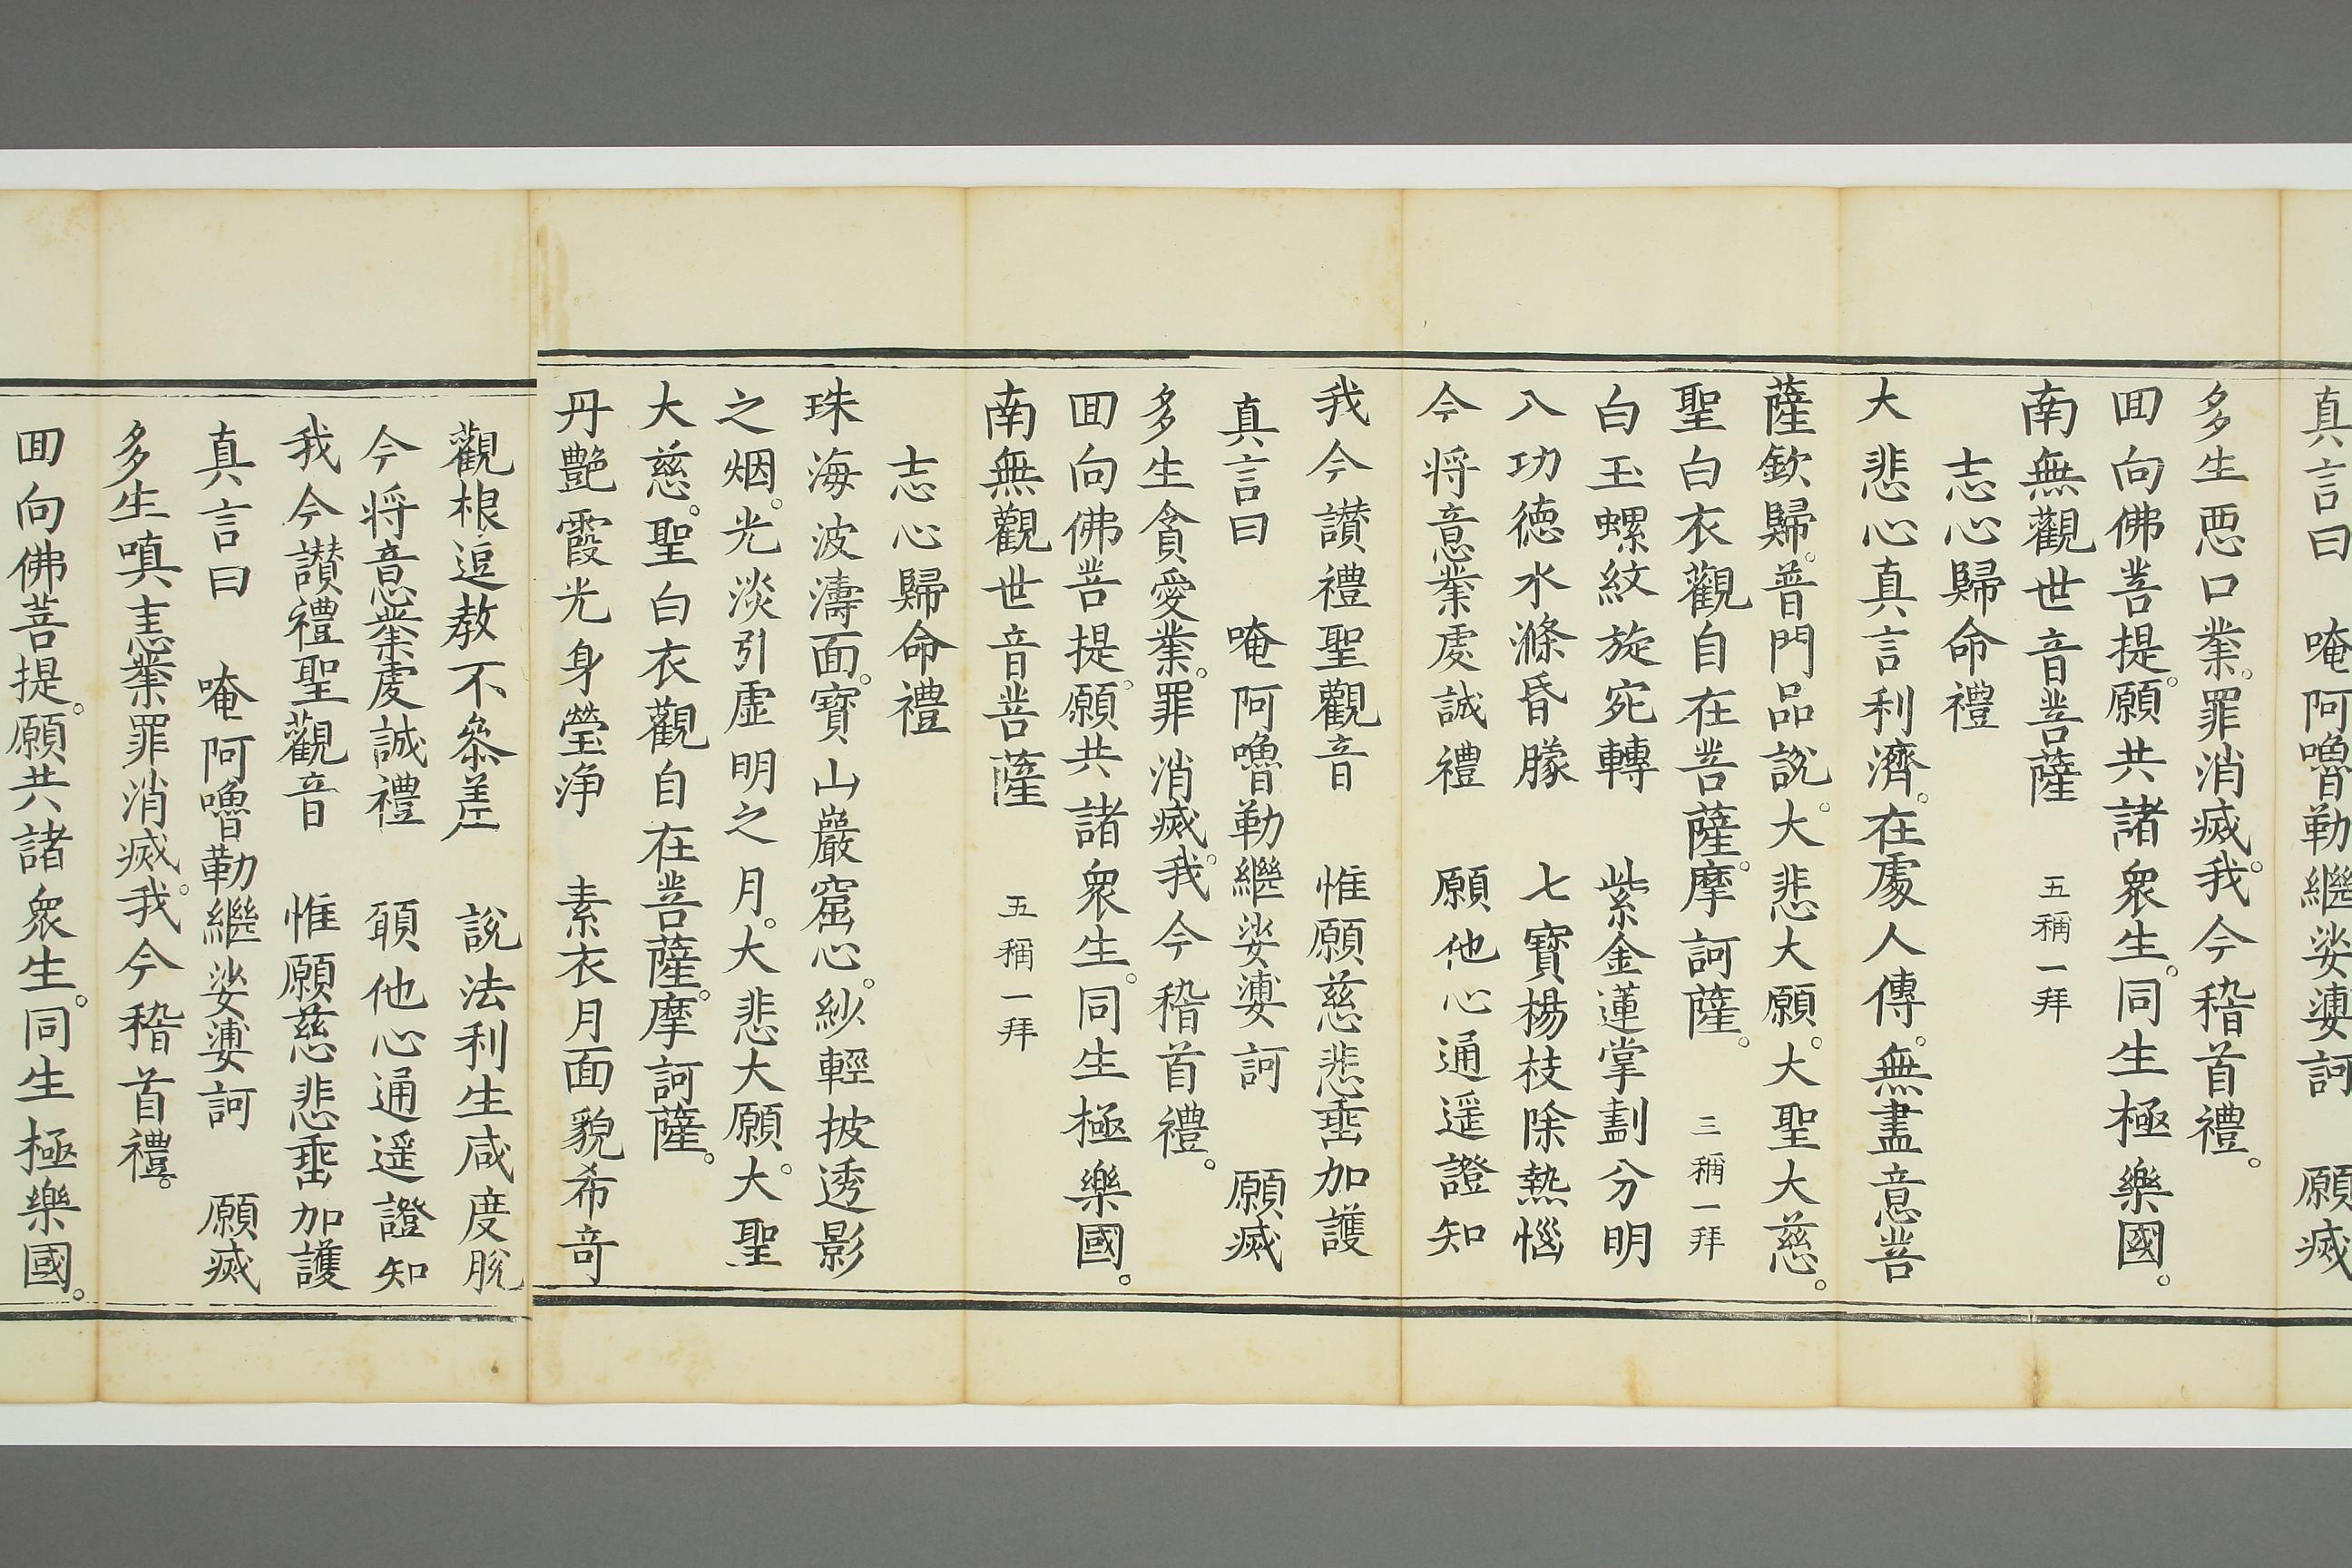 真言曰　唵阿嚕勒繼娑婆訶　願滅
多生悪口業。罪消滅。我今稽首禮。
囬向佛菩提。願共諸衆生。同生極樂國。
南無觀世音菩薩　五稱一拜
志心歸命禮
大悲心真言利濟。在處人傳。無盡意菩
薩欽歸。普門品說。大悲大願。大聖大慈。
聖白衣觀自在菩薩。摩訶薩。　三稱一拜
白玉螺紋旋宛轉　紫金蓮掌劃分明
八功德水滌昏朦　七寳楊枝除熱惱
今将意業虔誠禮　願他心通遥證知
我今讃禮聖觀音　惟願慈悲埀加護
真言曰　唵阿嚕勒繼娑婆訶　願滅
多生貪愛業。罪消滅。我今稽首禮。
囬向佛菩提。願共諸衆生。同生極樂國。
南無觀世音菩薩　五稱一拜
志心歸命禮
珠海波濤面。寳山巖窟心。紗輕披透影
之烟。光淡引虛明之月。大悲大願。大聖
大慈。聖白衣觀自在菩薩。摩訶薩。
丹艷霞光身瑩净　素衣月面貌希竒
觀根逗教不叅差　說法利生咸度脫
今将意業虔誠禮　願他心通遥證知
我今讃禮聖觀音　惟願慈悲埀加護
真言曰　唵阿嚕勒繼娑婆訶　願滅
多生嗔恚業罪消滅。我今稽首禮。
囬向佛菩提。願共諸衆生。同生極樂國。